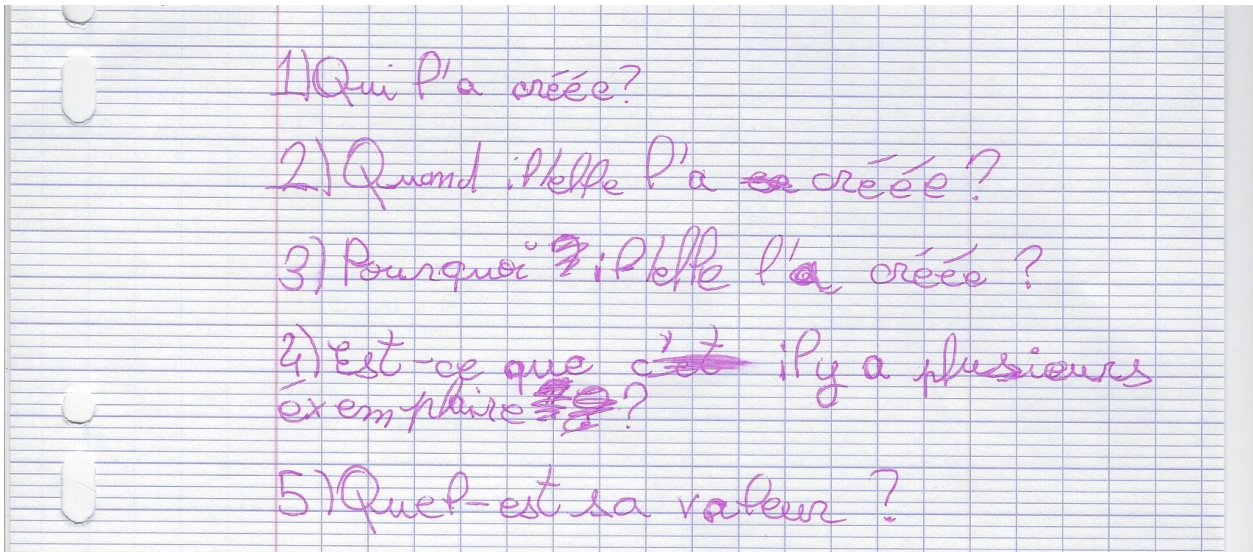 1) Qui l'a créée?
2) Quand il/elle l'a créée?
3) Pourquoi il/elle l'a créée ?
4) Est-ce que il y a plusieurs
éxemplaire ?
5) Quel-est sa valeur ?